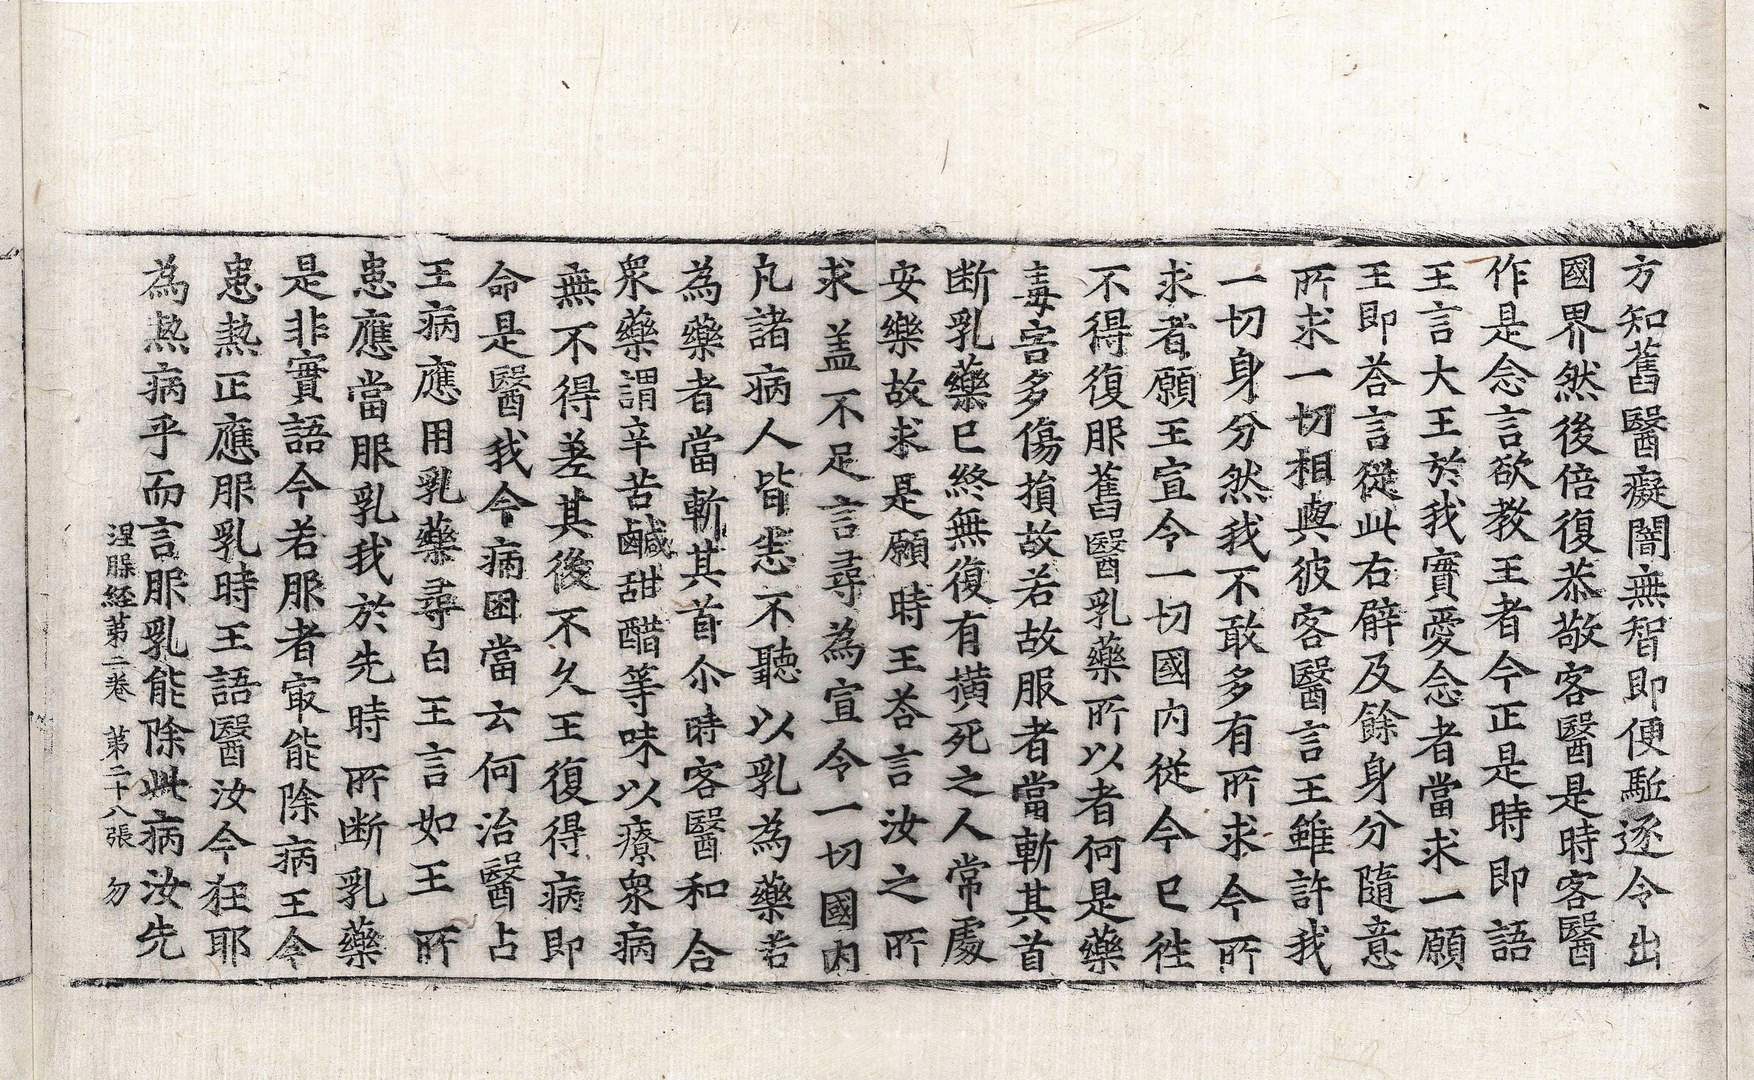 方知舊醫癡闇無智即便駈逐令出
國界然後倍復恭敬客醫是時客醫
作是念言欲教王者今正是時即語
王言大王於我實愛念者當求一願
王即荅言從此右臂及餘身分隨意
所求一切相與彼客醫言王雖許我
一切身分然我不敢多有所求今所
求者願王宣令一切國內從今已徃
不得復服舊醫乳藥所以者何是藥
毒害多傷損故若故服者當斬其首
断乳藥已終無復有撗死之人常處
安樂故求是願時王荅言汝之所
求盖不足言尋為宣令一切國內
凡諸病人皆悉不聽以乳為藥若
為藥者當斬其首尒時客醫和合
衆藥謂辛苦鹹甜醋等味以療衆病
無不得差其後不久王復得病即
命是醫我今病困當云何治醫占
王病應用乳藥尋白王言如王所
患應當服乳我於先時所断乳藥
是非實語今若服者㝡能除病王今
患熱正應服乳時王語醫汝今狂耶
為熱病乎而言服乳能除此病汝先
涅槃経第二卷 第二十八張 勿